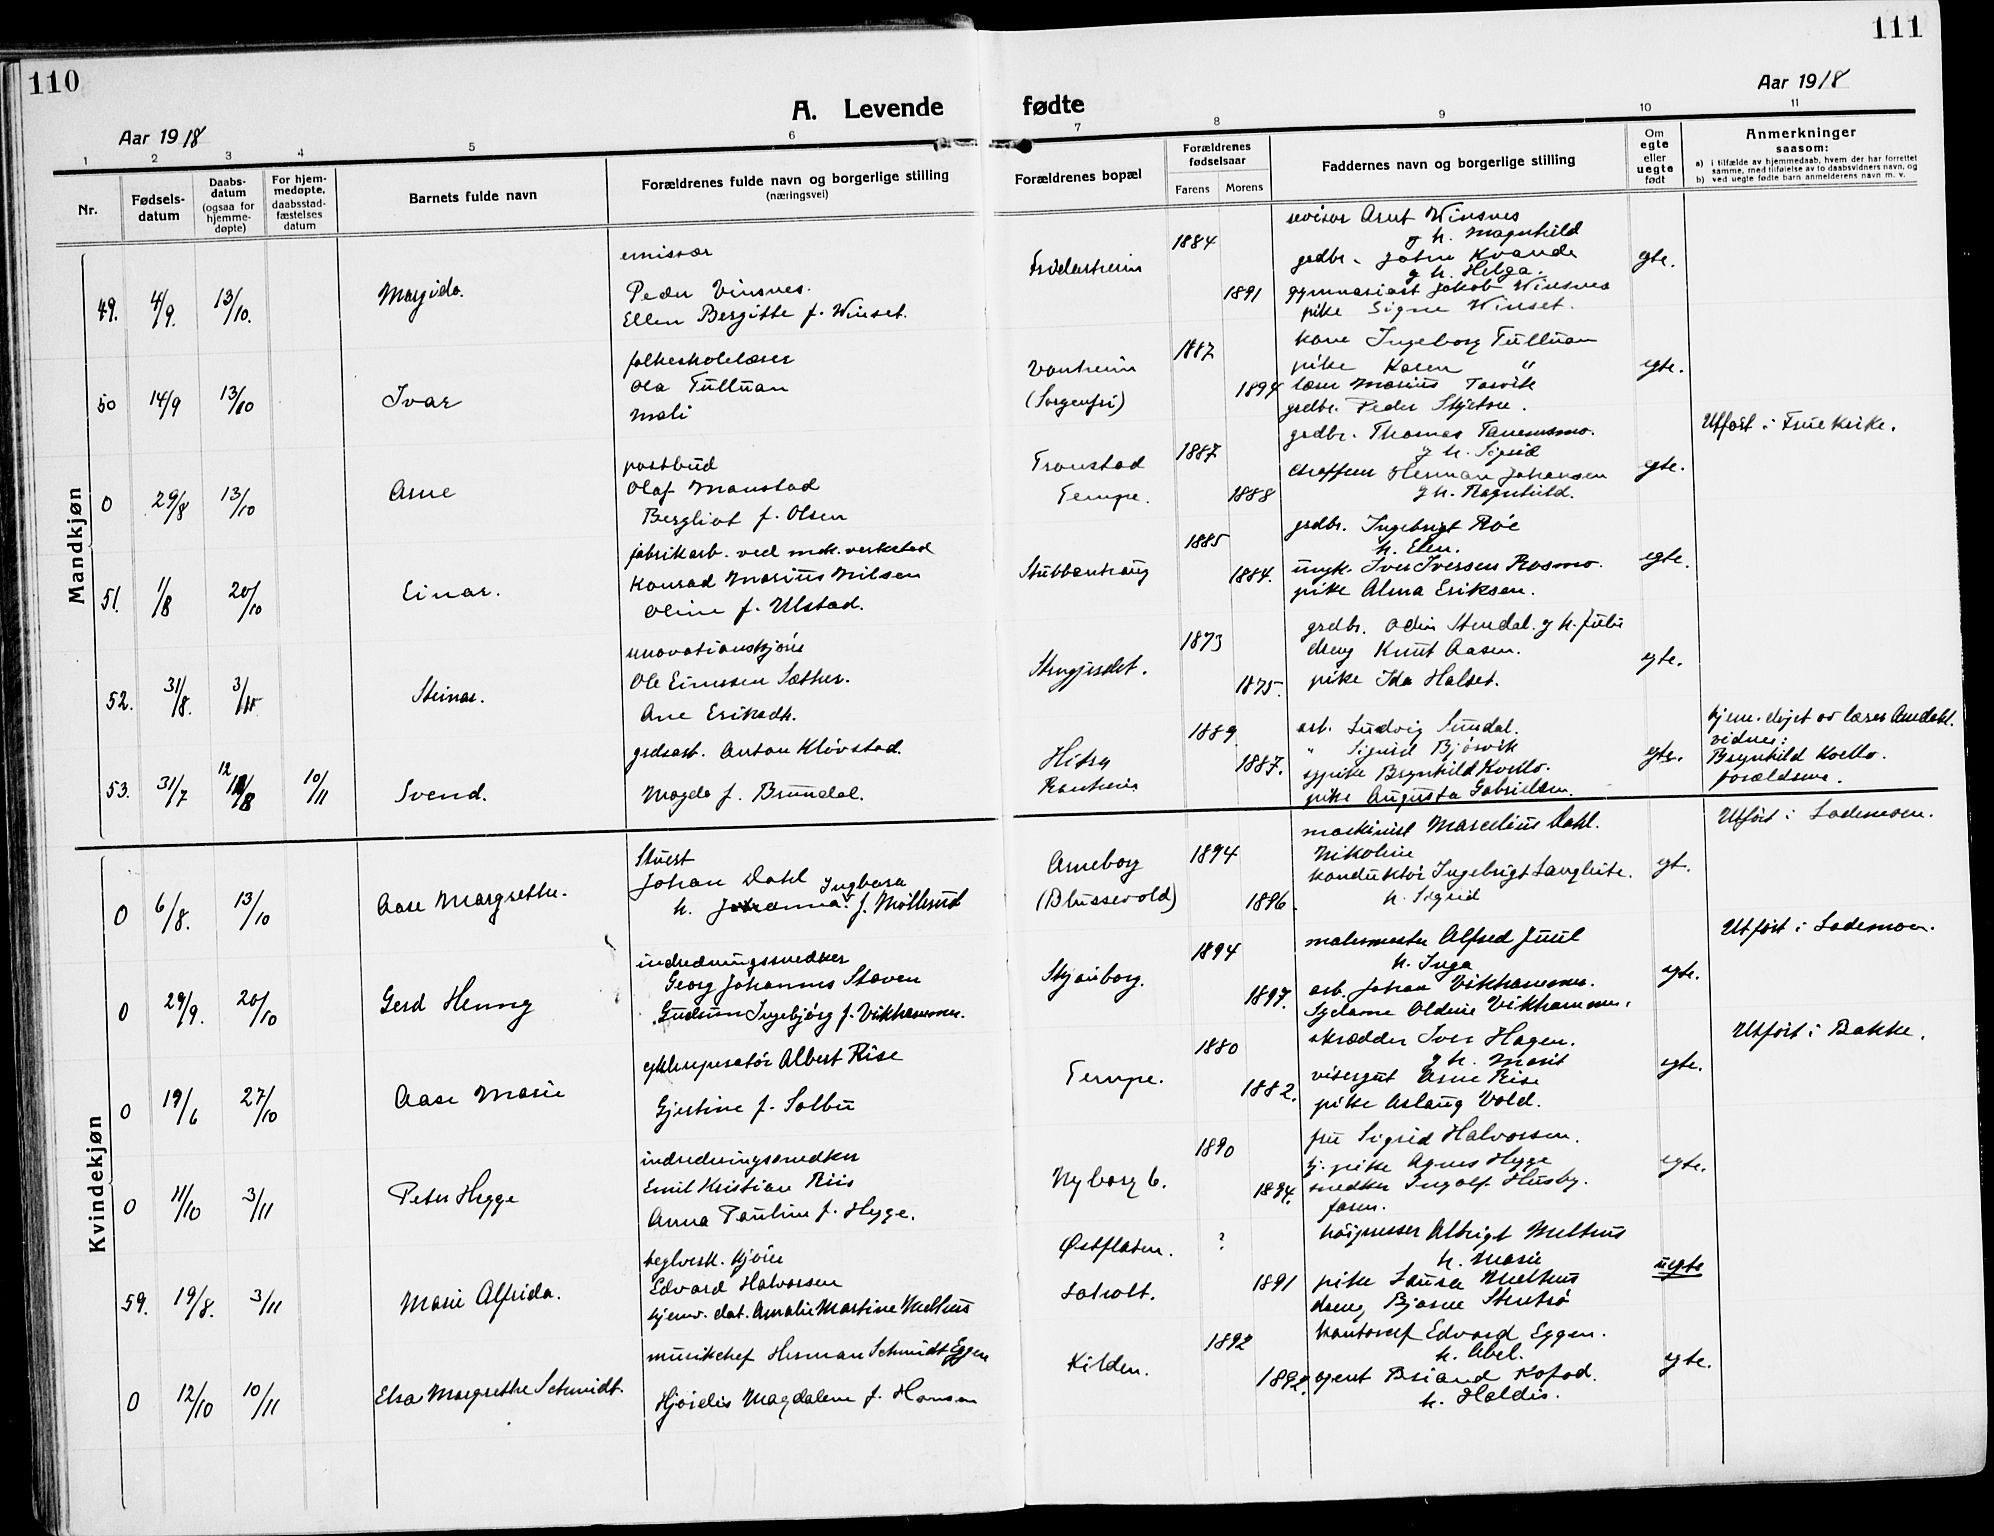 110
111
Aar 1918
A. Levende fødte
Aar 1918
1 2 3 4 5 6 7 8 9 10 11
Nr.
Fødsels-
datum
Daabs-
datum
(ogsaa for
hjemme-
døpte)
For hjem-
medøpte,
daabsstad-
fæstelses
datum
Barnets fulde navn
Forældrenes fulde navn og borgerlige stilling
(næringsvei)
Forældrenes bopæl
Forældrenes
fødselsaar
Farens Morens
Faddernes navn og borgerlige stilling
Om
egte
eller
uegte
født
Anmerkninger
saasom:
a) i tilfælde av hjemmedaab, hvem der har forrettet
samme, med tilføielse av to daabsvidners navn, og
b) ved uegte fødte barn anmelderens navn m. v.
Mandkjøn
49. 4/9. 13/10.
emissær
Peder Vinsnes.
Ellen Bergitte f. Winset.
1884
1891
revisor Arnt Winsnes
g h. Magnhild
grdbr. John Kvande
g h. Helga.
gymnasiast Jakob Winsnes
pike Signe Winset.
egte.
50 14/9 13/10
Ivar
folkeskolelærer
Ola Tulluan
Mali
Vanheim
(Sorgenfri)
1887
1894
kone Ingeborg Tulluan
pike Karen "
lærer Marius
grdbr. Peder
egte.
0 29/8 13/10
Arne
postbud
Olaf Monstad
Bergliot f. Olsen
Tronstad
Tempe.
1887
1888
grdbr. Thomas Tanemsmo.
g h. Sigrid
chaffeur Herman Johansen
g h. Ragnhild.
egte.
Utført i Fruekirke.
51. 1/8 20/10
Einar.
fabrikarb. ved mek. verksted
Konrad Marius Nilsen
Oline f. Ulstad.
Stubbanhaug
1885
1884.
grdbr. Ingebrigt Røe
h. Elen.
ungk. Iver Iversen Rosmo.
pike Alma Eriksen.
egte.
52. 31/8. 3/11.
Steinar.
renovationskjøre
Ole Einersen Sæther.
Ane Eriksdt.
Stengjerdet.
1873
1875.
grdbr. Odin Stendal. g h. Julie
dreng Knut Aasen.
pike Ida Halset.
egte.
53. 31/7 12/8 10/11
Svend.
grdsarb. Anton Kløvstad.
Magda f. Brundal.
Hitra
Ranheim
1889
1887.
arb. Ludvig Sundal.
" Sigurd Bjørvik
sypike Brynhild Kvello.
pike Augusta Gabrielsen.
egte.
hjem. døpt av lærer
vidner:
Brynhild Kvello.
forældrene.
Kvindekjøn
0 6/8. 13/10
Aase Margrethe.
Johan Dahl
h. Johanna Ingbora f. Møllerud
Arneborg
(Blussevold)
1894
1896.
maskinist Marcelius Dahl.
Nikoline
konduktør Ingebrigt Langlite.
h. Sigrid
egt.
Utført i Lademoen.
0 29/9. 20/10
Gerd Henny
indredningssnedker
Georg Johannes Staven
Gudrun Ingebjørg f. Vikhammer.
Skjønborg.
1894
1897.
malermester Alfred Juul
h. Inga
arb. Johan Vikhammer.
Sydame Oldine Vikhammer.
egte.
Utført i Lademoen.
0 19/6 27/10
Aase Marie
cykkelreparatør Albert Rise
Gjertine f. Solbu
Tempe.
1880
1882.
skrædder Iver Hagen.
g h. Marit
visergut Arne Rise
pike Aslaug Vold.
egte.
Utført i Bakke.
0 11/10 3/11
Peter Hegge
indredningssnedker
Emil Kristian Riis
Anna Pauline f. Hegge.
Nyborg 6.
1890
1894.
fru Sigrid Halvorsen.
tj. pike Agnes Hegge
snedker Ingolf Husby.
faren.
egte.
59. 19/8. 3/11
Marie Alfrida.
teglverk. kjøre
Edvard Halvorsen
hjemv. dat. Amalie Martine Melhus
Østflaten.
Loholt.
?
1891
høipresser Albrigt Melhus
h. Marie
pike Laura Melhus
dreng Bjarne Stentrø
uegte
0 12/10 10/11
Elsa Margrethe Schmidt.
musikchef Herman Schmidt Eggen
Hjørdis Magdalene f. Hansen
Kilden.
1892
1892.
kontorchef Edvard Eggen.
h. Abel.
agent Briand Kofod.
h. Haldis.
egte.